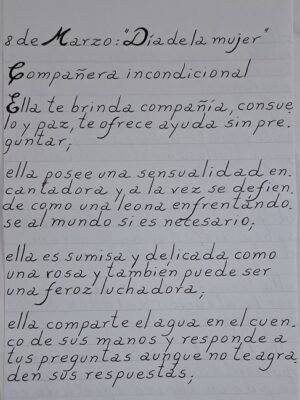 8 de Marzo: "Día de la mujer"
Compañera incondicional
Ella te brinda compañía, consue
lo y paz, te ofrece ayuda sin pre.
guntar;
ella posee una sensualidad en.
cantadora y a la vez se defien.
de como una leona enfrentándo.
se al mundo si es necesario;
ella es sumisa y delicada como
una rosa y tambien puede ser
una feroz luchadora;
ella comparte el agua en el cuen.
co de sus manos y responde a
tus preguntas aunque no te agra.
den sus respuestas;